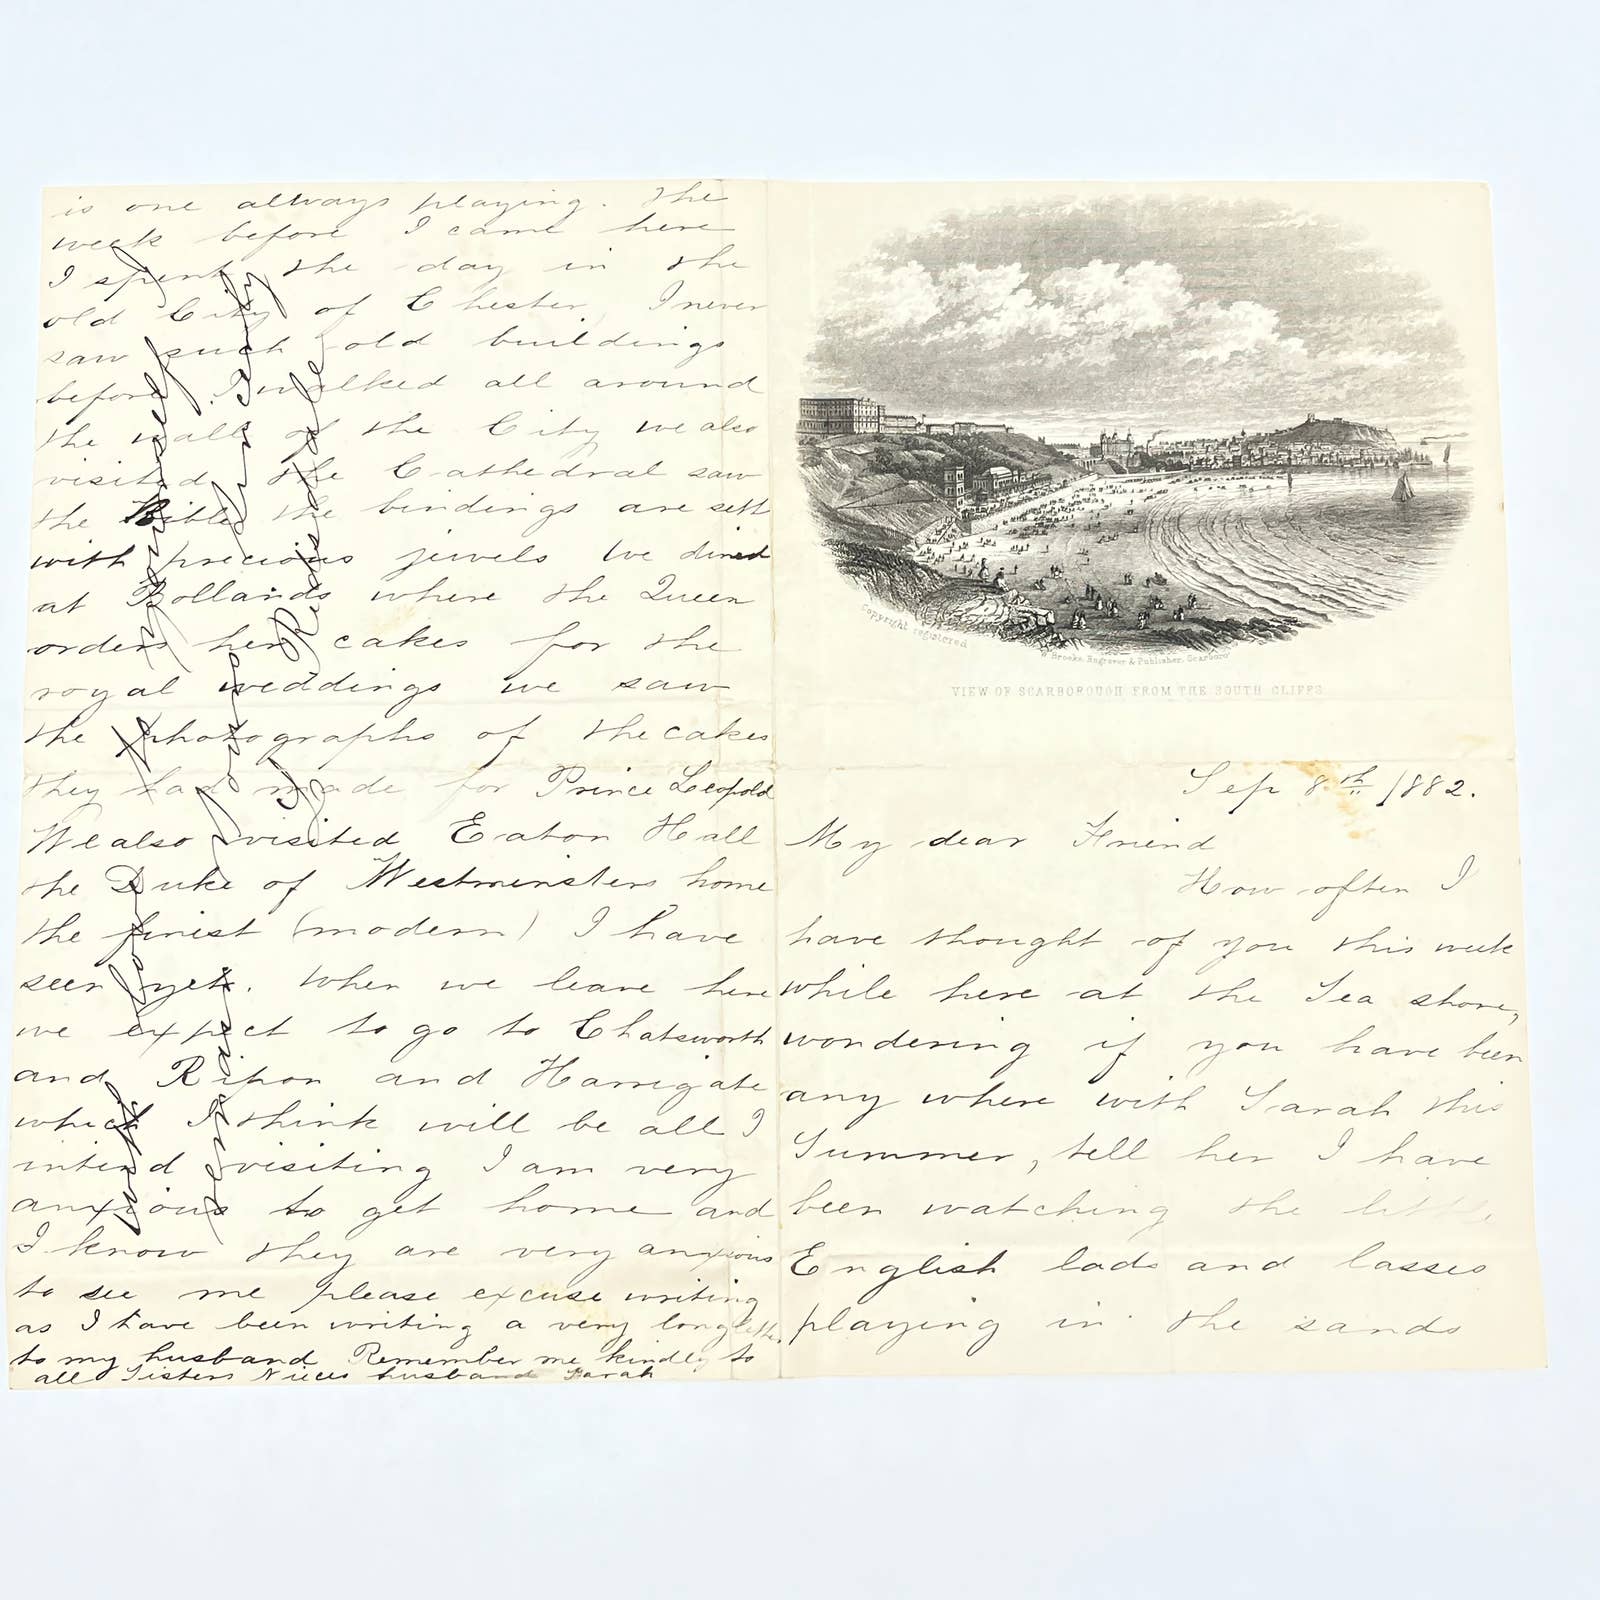 Copyright registered
W Brooks, Engraver & Publisher, Scarboro'
VIEW OF SCARBOROUGH FROM THE SOUTH CLIFFS
Sep 8th 1882.
My dear Friend
How often I
have thought of you this week
while here at the Sea shore,
wondering if you have been
any where with Sarah this
Summer, tell her I have
been watching the little
English lads and lasses
playing in the sands
is one always playing. The
week before I came here
I spent the day in the
old City of Chester, I never
saw such old buildings
before. I walked all around
the wall of the City we also
visited the Cathedral saw
the Bible the bindings are sett
with precious jewels We dined
at Bollands where the Queen
orders her cakes for the
royal weddings we saw
the photographs of the cakes
they had made for Prince Leopold
We also visited Eaton Hall
the Duke of Westminsters home
the finest (modern) I have
seen yet. When we leave here
we expect to go to Chatsworth
and Ripon and Harrigate
which I think will be all I
intend visiting I am very
anxious to get home and
I know they are very anxious
to see me please excuse writing
as I have been writing a very long letter
to my husband Remember me kindly to
all Sisters Nieces husband Sarah